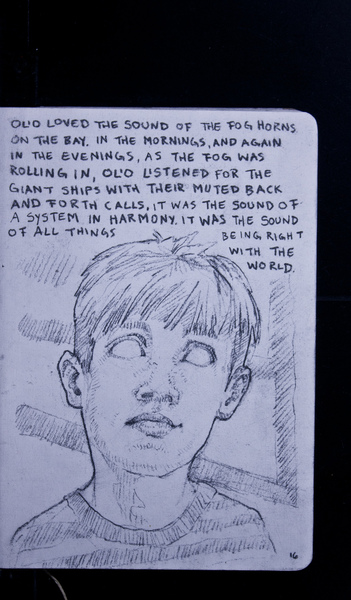 OL'O LOVED THE SOUND OF THE FOG HORNS
ON THE BAY. IN THE MORNINGS, AND AGAIN
IN THE EVENINGS, AS THE FOG WAS
ROLLING IN, OL'O LISTENED FOR THE
GIANT SHIPS WITH THEIR MUTED BACK
AND FORTH CALLS. IT WAS THE SOUND OF
A SYSTEM IN HARMONY. IT WAS THE SOUND
OF ALL THINGS BEING RIGHT
WITH THE
WORLD.
16